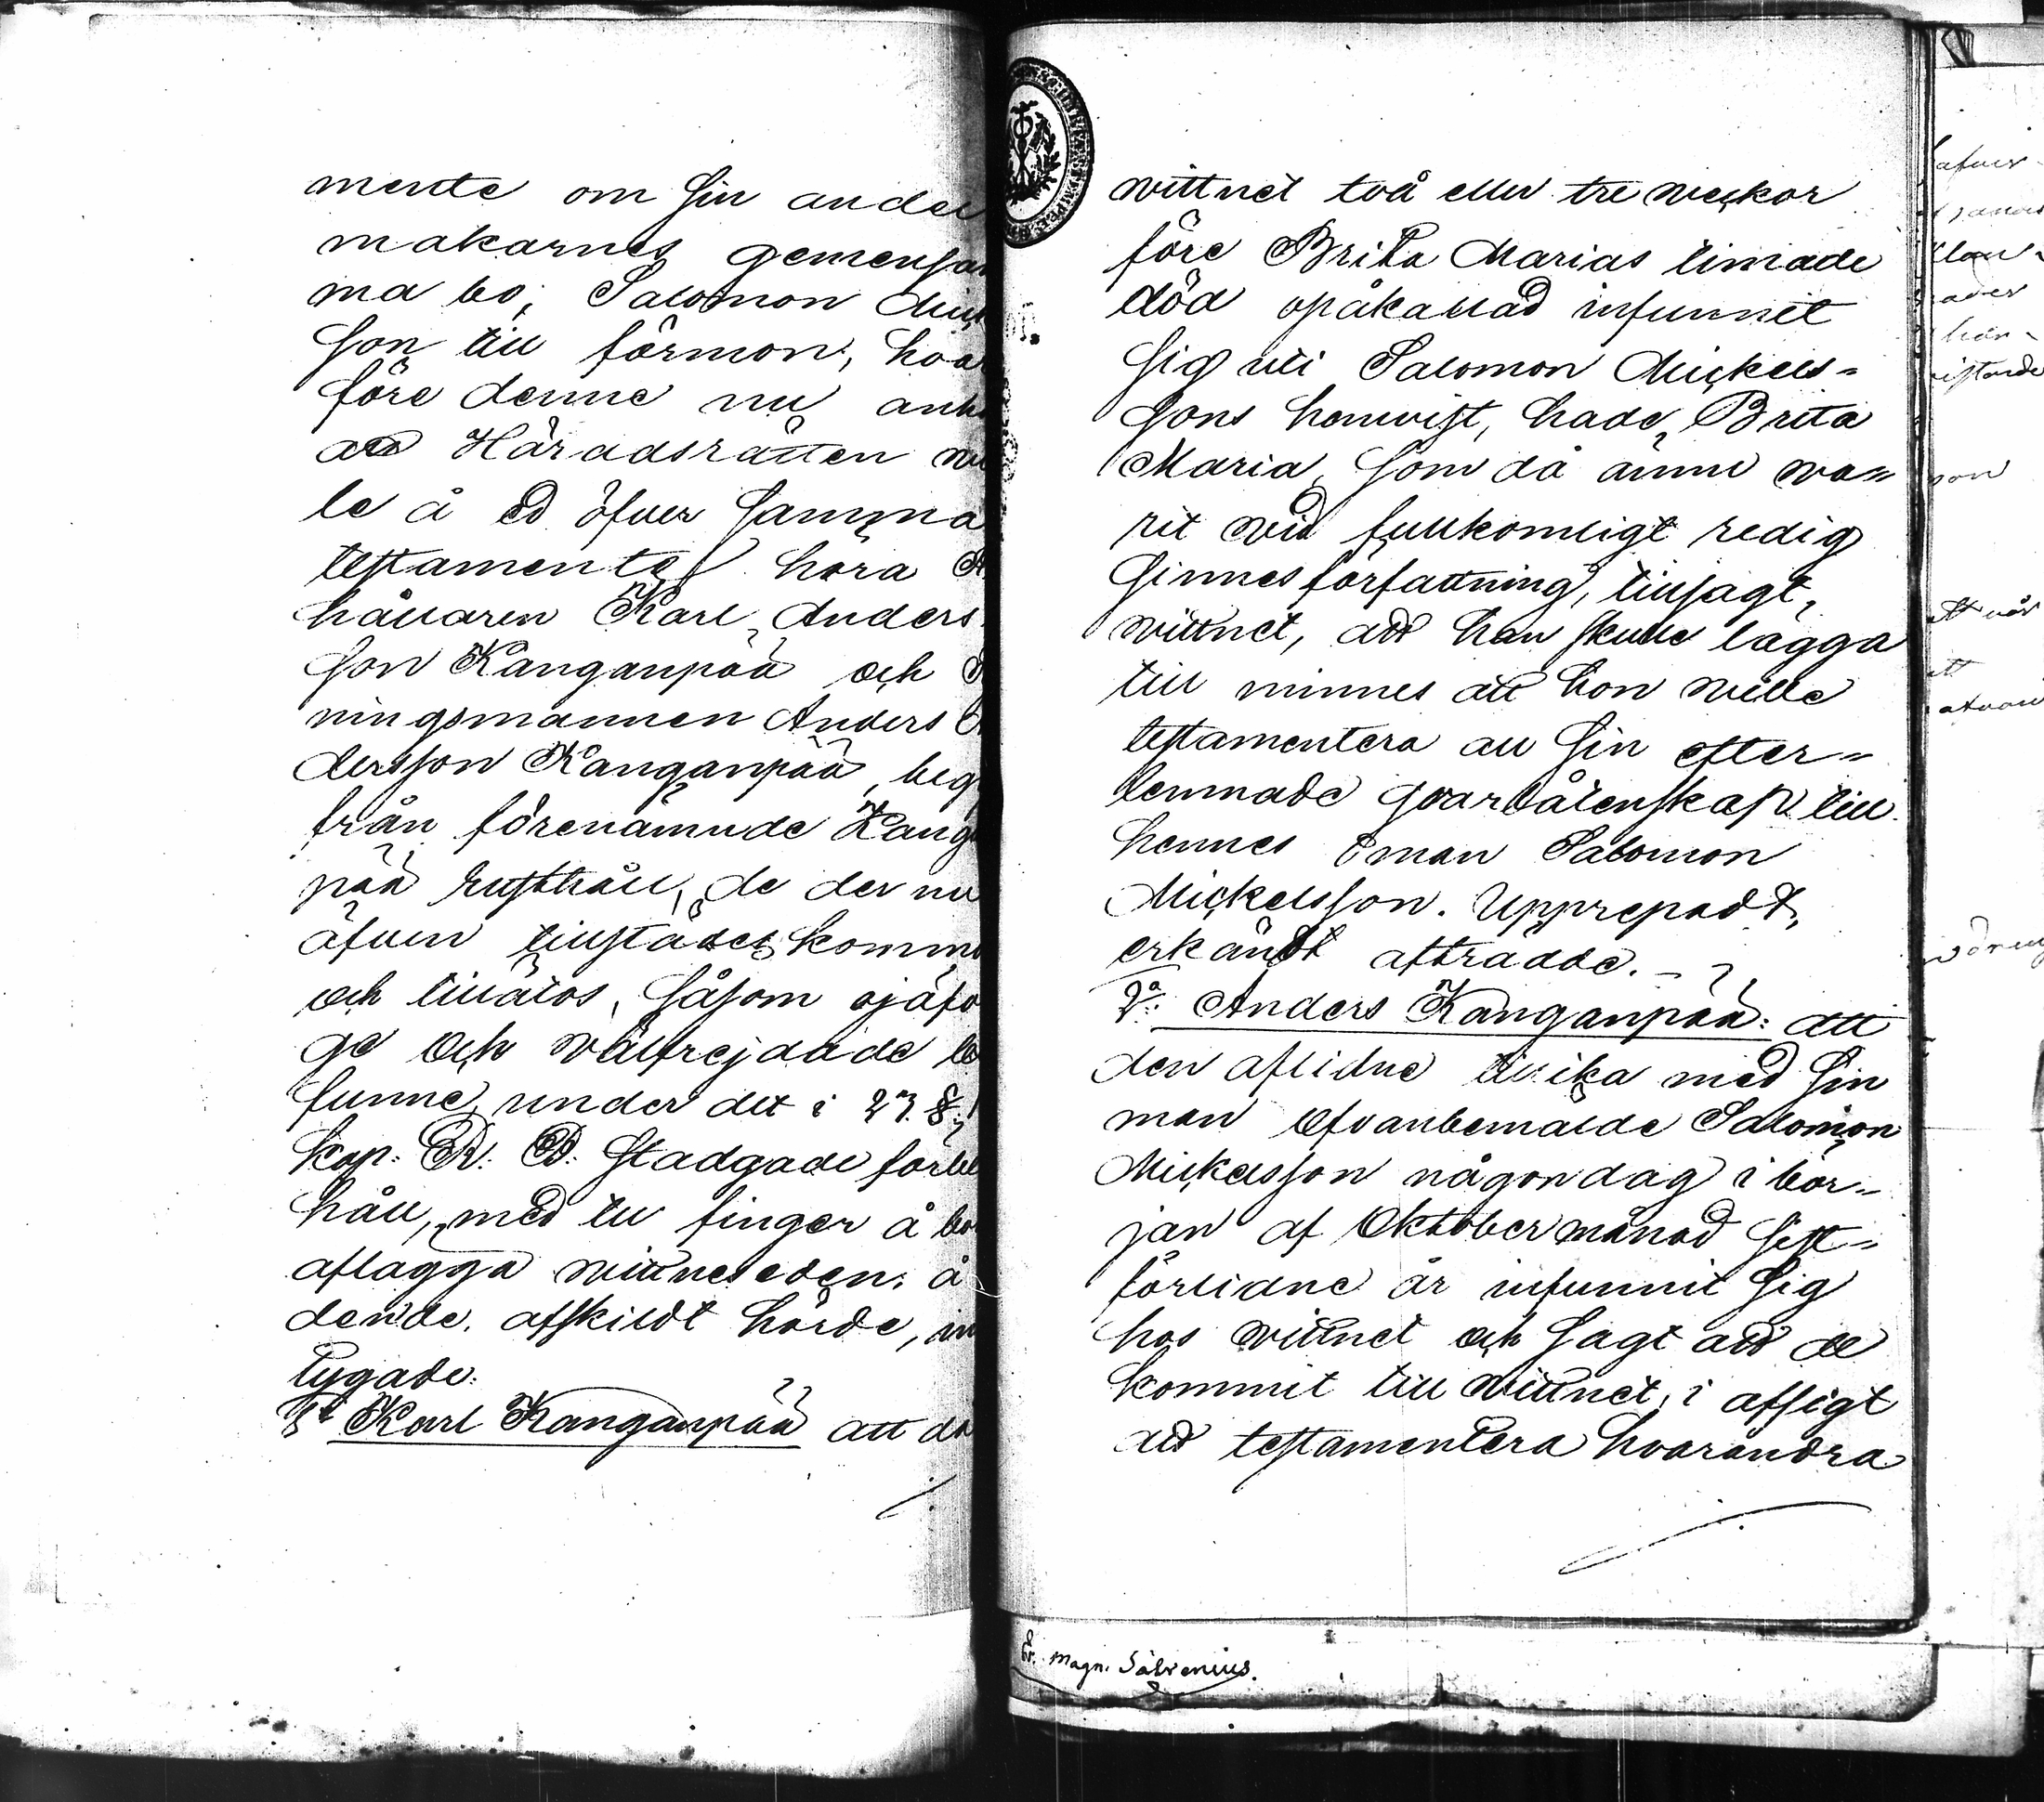 mente om sin andel
makarnes gemensam
ma bo, Salomon Mick
son till förmon, hvar
före denne nu anh
att Häradsrätten vil
le å ed öfver samma
testamente höra
hållaren Karl Anders
son Kanganpää och
ningsmannen Anders
dersson Kanganpää, beg
från förenämnde Kanga
pää rusthåll, de der nu
äfven tillstädes komm
och tillätos, såsom ojäfvi
ge och välfrejdade be
funne, under det i 23. §.
Kap. R. B. stadgade förbe
håll, med tu finger å bok
aflägga vittneseden, å
dende, afskildt hörde, in
tygade:
1o Karl Kanganpää att då
vittnet två eller tre veckor
före Brita Marias timade
död opåkallad infunnit
sig uti Salomon Mickels-
sons hemvist, hade Brita
Maria, som då ännu va-
rit vid fullkomligt redig
sinnesförfattning, tillsagt
vittnet, att han skulle lägga
till minnes att hon ville
testamentera all sin efter-
lemnade qvarlåtenskap till
hennes man Salomon
Mickelsson. Upprepadt,
erkändt afträdde. -
2o: Anders Kanganpää: att
den aflidne tillika med sin
man ofvanbemälde Salomon
Mickelsson någon dag i bör-
jan af Oktober månad sist-
förlidne år infunnit sig
hos vittnet och sagt att de
kommit till vittnet, i afsigt
att testamentera hvarandra
Magn. Salvenius.